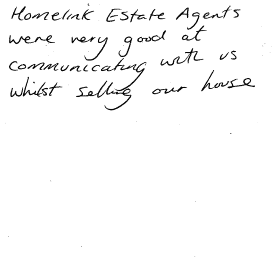 Homelink Estate Agents
were very good at
communicating with us
whilst selling our house